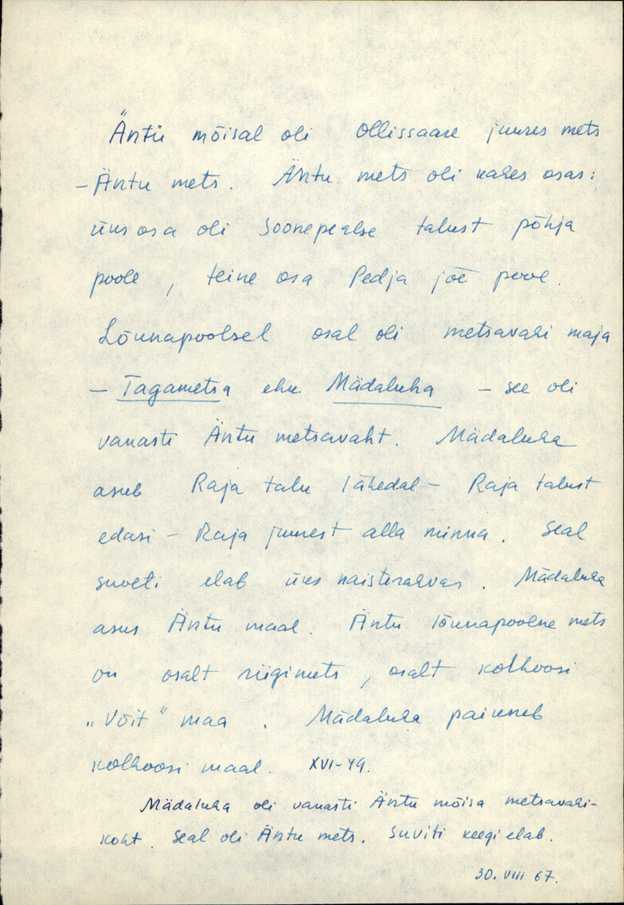 "Äntu mõisal oli Ollissaare juures mets
- Äntu mets. Äntu mets oli kahes osas:
üks osa oli Soonepealse talust põhja
poole, teine osa Pedja jõe pool.
Lõunapoolsel osal oli metsavahi maja
- Tagametsa ehk Mädaluha - see oli
vanasti Äntu metsavaht. Mädaluha
asub Raja talu lähedal - Raja talust
edasi - Raja juurest alla minna. Seal
suveti elab üks naisterahvas. Mädaluha
asus Äntu maal. Äntu lõunapoolne mets
on osalt riigimets, osalt kolhoosi
„Võit" maa. Mädaluha paikneb
kolhoosi maal. XVI-49.
Mädaluha oli vanasti Äntu mõisa metsavahi-
koht. Seal oli Äntu mets. Suviti keegi elab.
30. VIII 67.